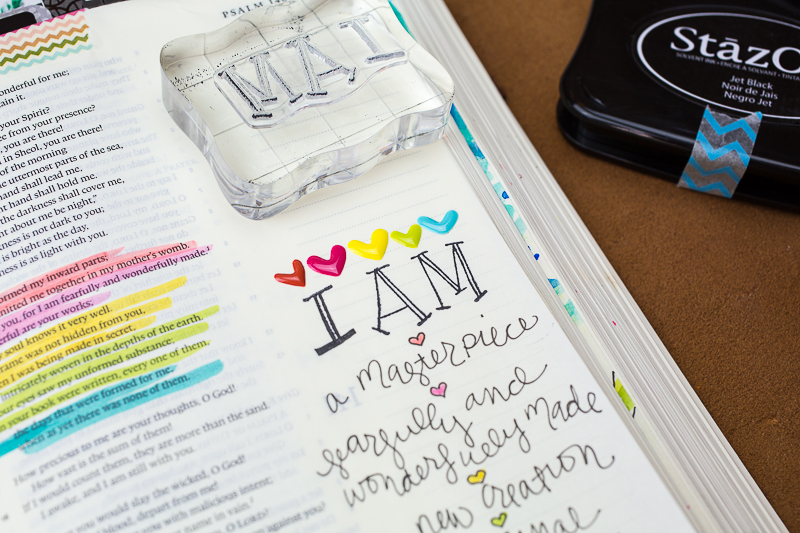 PSALM
onderful for me;
ain it.
your Spirit?
ee from your presence?
you are there!
in Sheol, you are there!
of the morning
e uttermost parts of the sea,
hand shall lead me,
ht hand shall hold me.
the darkness shall cover me,
ght about me be night,"
ness is not dark to you;
is bright as the day,
ness is as light with you.
ormed my inward parts;
nitted me together in my mother's womb.
you, for I am fearfully and wonderfully made.
rful are your works;
soul knows it very well.
rame was not hidden from you,
n I was being made in secret,
intricately woven in the depths of the earth.
our eyes saw my unformed substance;
n your book were written, every one of them,
the days that were formed for me,
when as yet there was none of them.
How precious to me are your thoughts, O God!
How vast is the sum of them!
If I would count them, they are more than the sand.
I awake, and I am still with you.
you would slay the wicked, O God!
blood, depart from me!
you with malicious intent;
name in vain.
O LORD?
against you?
I AM
I AM
a masterpiece
fearfully and
wonderfully made
new creation
StāzO
SOLVENT INK • ENCRE A SOLVANT
Jet Black
Noir de Jais
Negro Jet